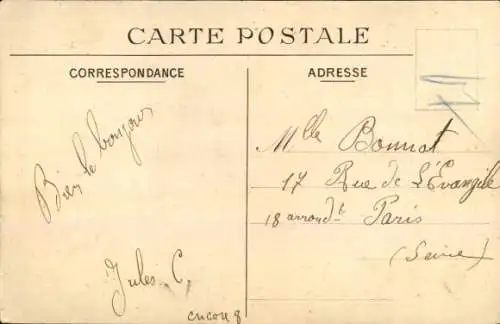 CARTE POSTALE
CORRESPONDANCE
Bien le bonjour
Jules C,
encou 8
ADRESSE
Mlle Bonnat
17 Rue de L'Évangile
18 arrondt Paris
(Seine)